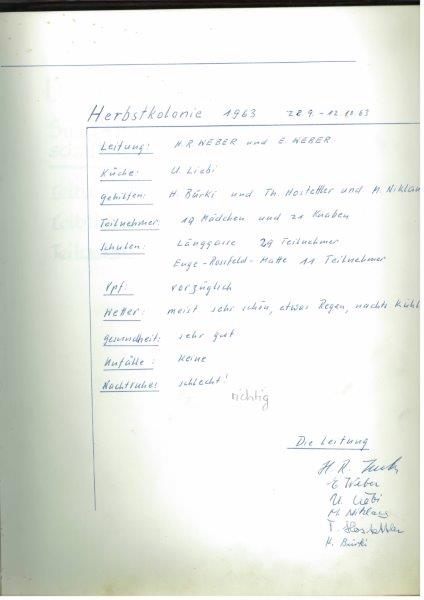 Herbstkolonie 1963 28.9.-12.10.63
Leitung: H.R. WEBER und E. WEBER.
Küche: U. Liebi
Gehilfen: H. Bürki und Th. Hostettler und M. Niklau
Teilnehmer: 19 Mädchen und 21 Knaben
Schulen: Länggasse 29 Teilnehmer
Enge-Rossfeld-Matte 11 Teilnehmer
Vpf: vorzüglich
Wetter: meist sehr schön, etwas Regen, nachts Kühl
Gesundheit: sehr gut
Unfälle: Keine
Nachtruhe: schlecht!
richtig
Die Leitung
H. R.
E Weber
U. Liebi
M. Niklaus
T. Hostettler
H. Bürki